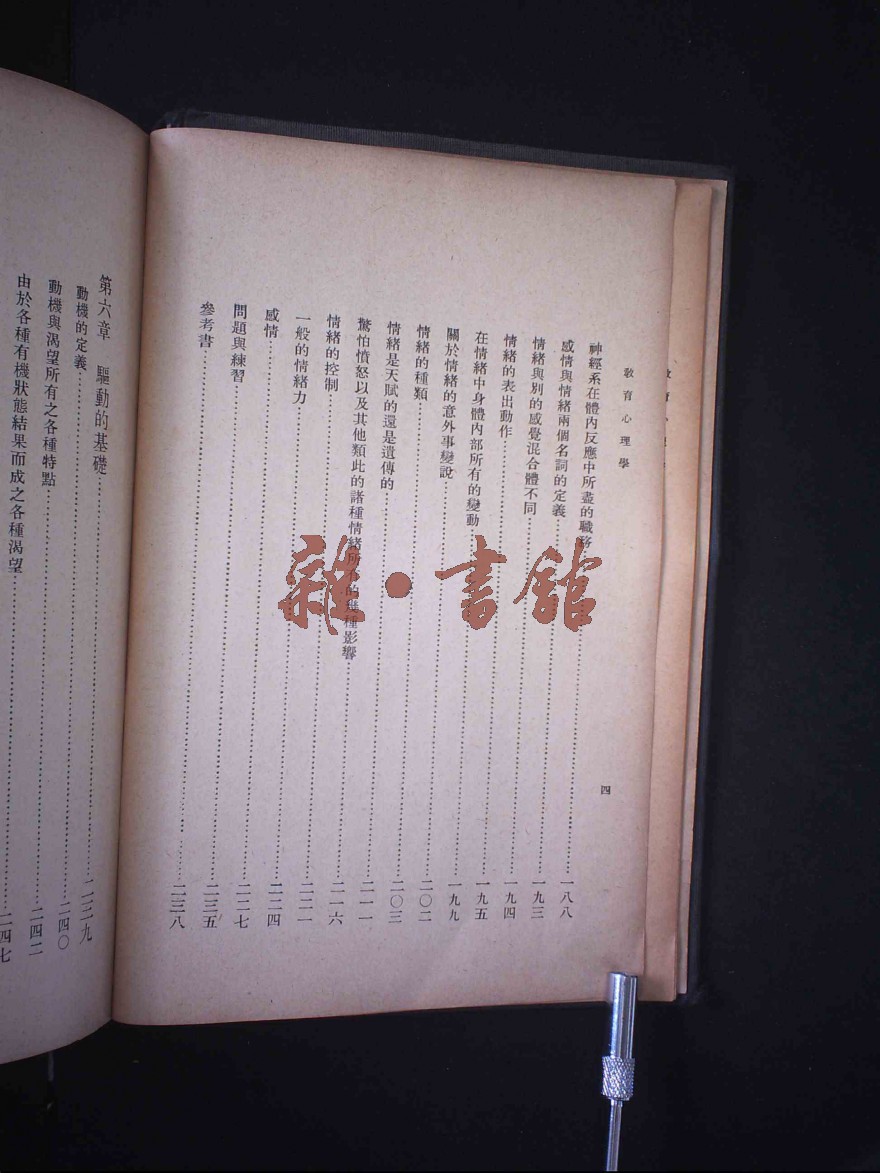 敎育心理學 四
神經系在體內反應中所盡的職務……一八八
感情與情緒兩個名詞的定義……一九三
情緒與別的感覺混合體不同……一九四
情緒的表出動作……一九五
在情緒中身體內部所有的變動……一九九
關於情緒的意外事變說……二〇二
情緒的種類……二〇三
情緒是天賦的還是遺傳的……二一一
驚怕憤怒以及其他類此的諸種情緒所有的幾種影響……二一六
情緒的控制……二二一
一般的情緒力……二二四
感情……二二七
問題與練習……二三五
參考書……二三八
第六章 驅動的基礎……二三九
動機的定義……二四〇
動機與渴望所有之各種特點……二四二
由於各種有機狀態結果而成之各種渴望……二四七
雜·書館